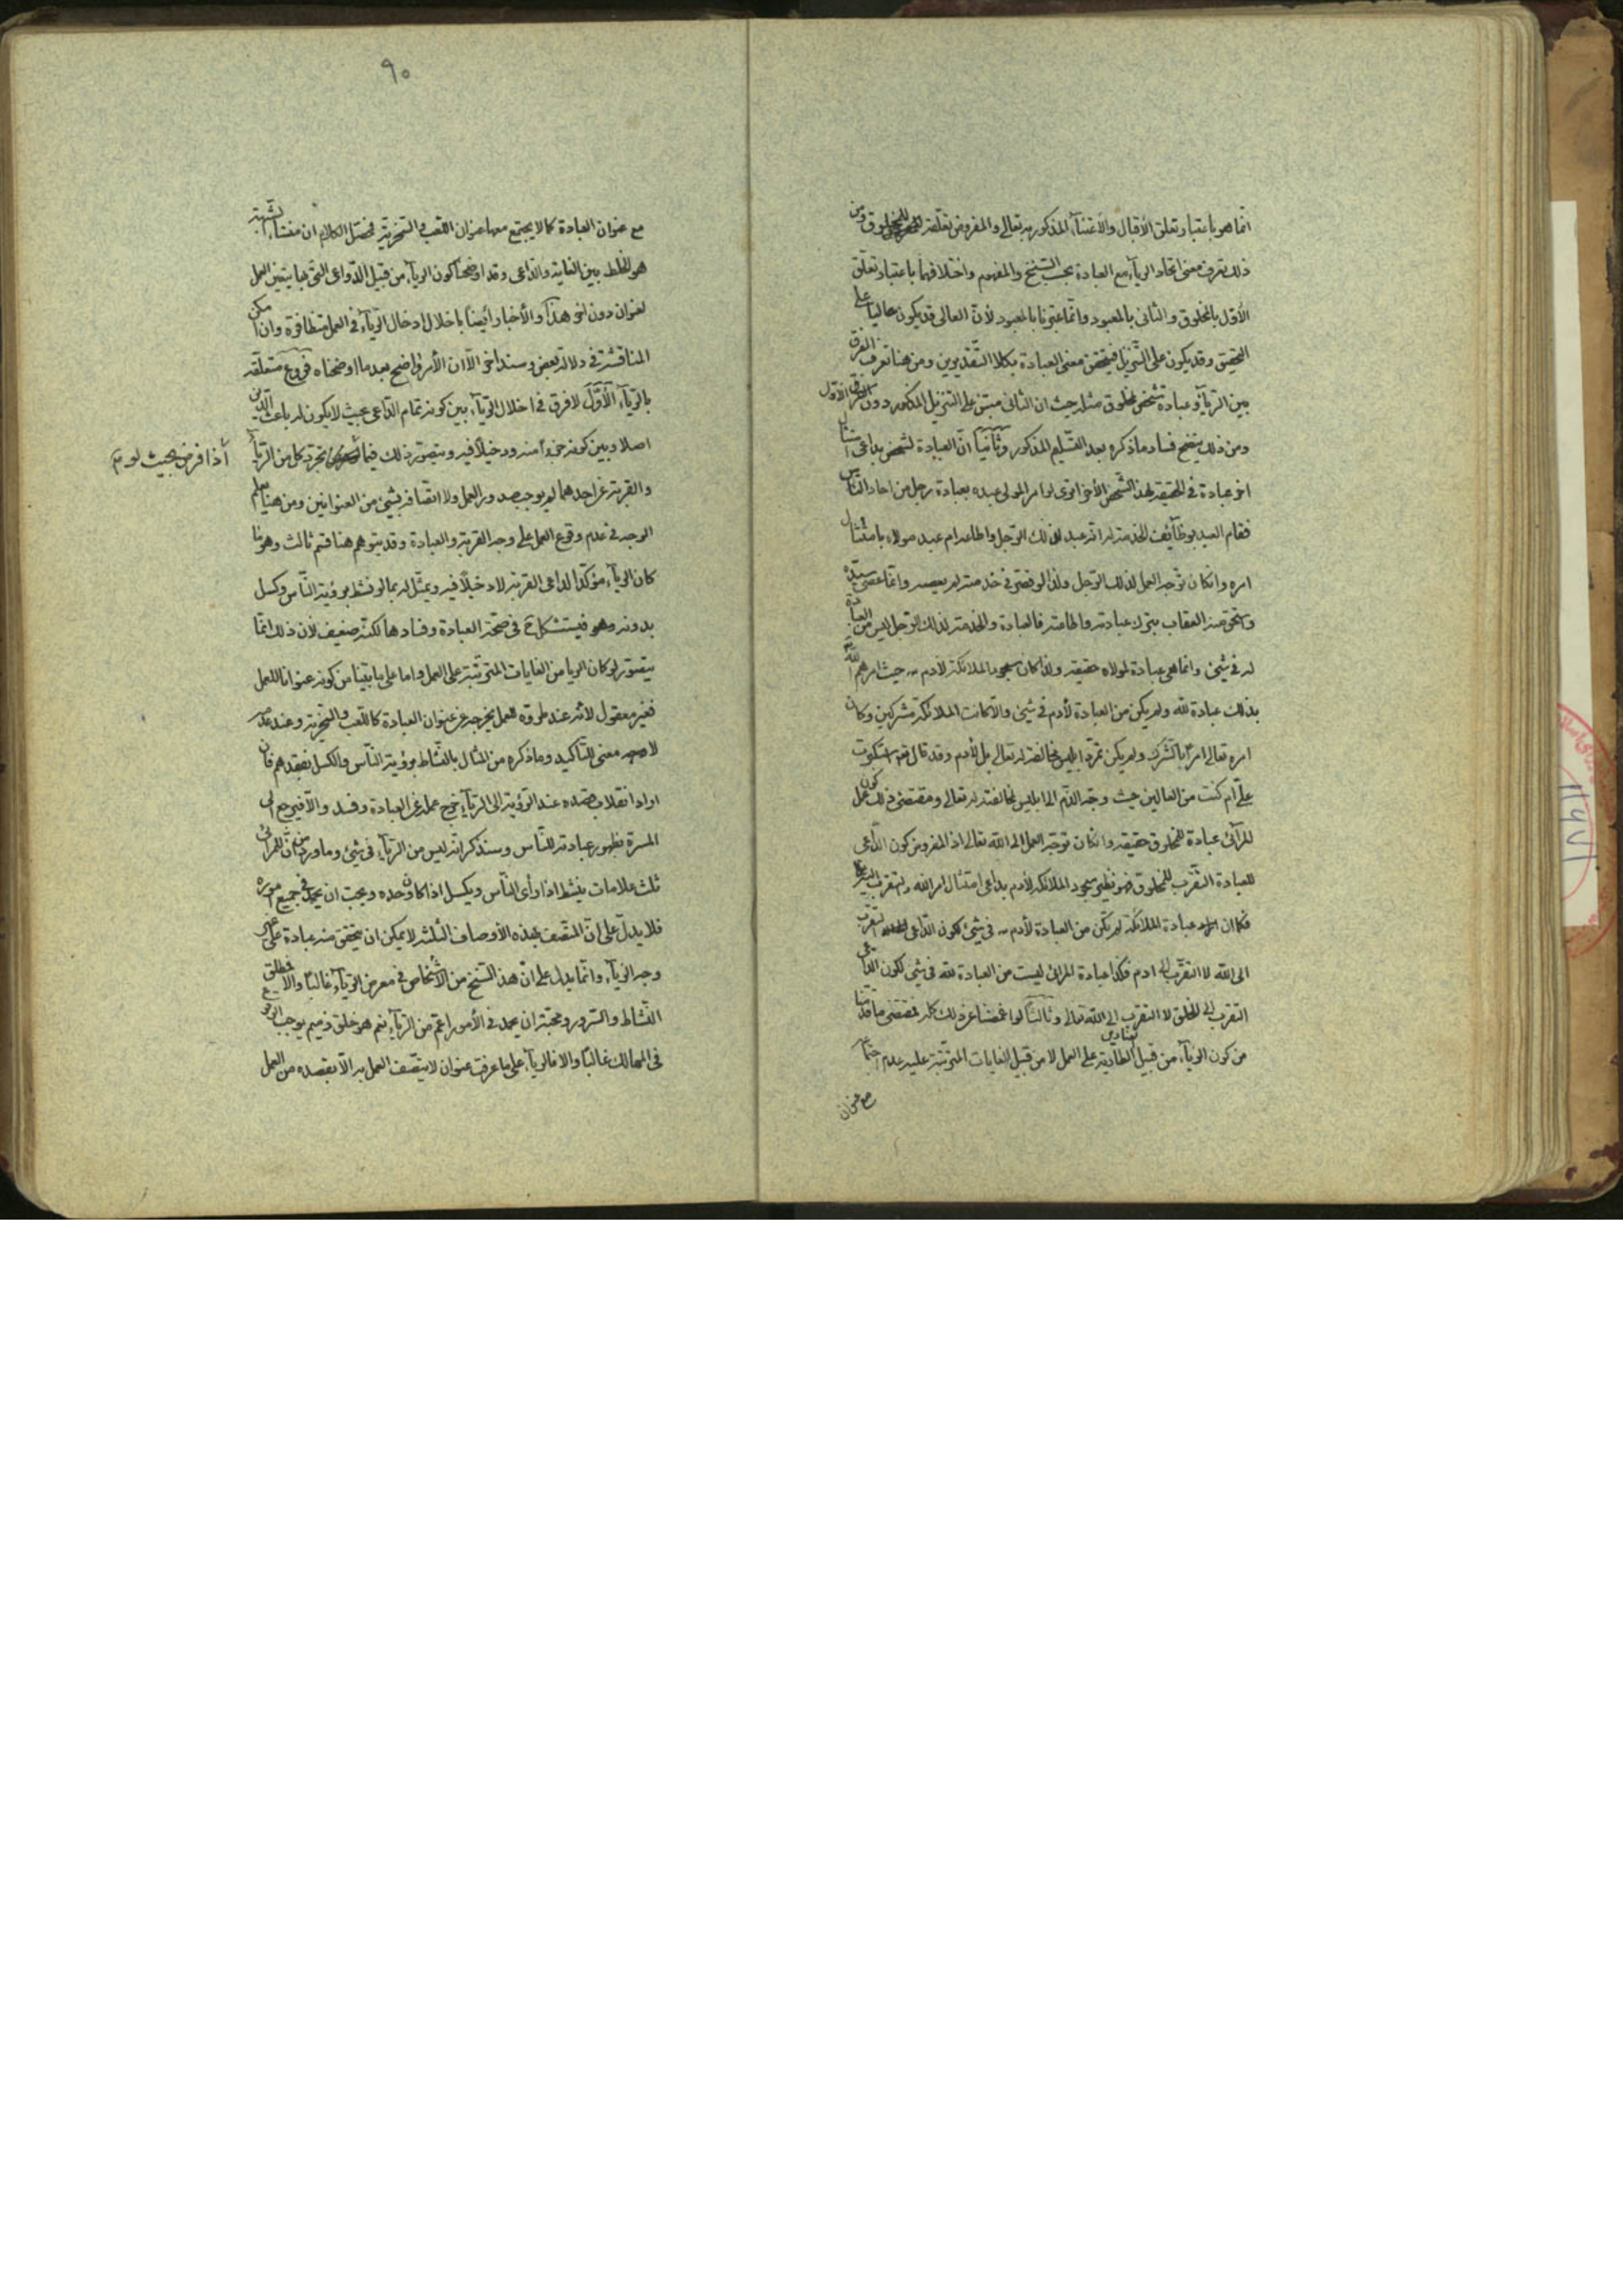 انّما هو باعتبار تعلق الأقبال والأعتناء المذكور به تعالى والمفروض تعلّقه للمخلوق ومن
ذلك تعرف معنى اتحاد الرياء مع العبادة بحسب السنخ والمفهوم واختلافهما باعتبار تعلق
الأول بالمخلوق والثانى بالمعبود وانّما عبّرنا بالمعبود لأنّ العالى قد يكون عاليا على
التحقيق وقد يكون على التنزيل فيتحقق معنى العبادة بكلا التقديرين ومن هنا تعرف الفرق
بين الرياء وعبادة شخص لمخلوق مثله حيث ان الثانى مبتنى على التنزيل المذكور دون الأول
ومن ذلك يتضح فساد ما ذكره بعد التسليم المذكور وثانياً انّ العبادة لشخص بداعى امتثال
اخر عبادة فى الحقيقة لهذا الشخص الأخر اترى لو امر المولى عبده بعبادة رجل من احاد الناس
فقام العبد بوظائف الخدمة له انّه عبد لذلك الرجل واطاعه ام عبد مولاه بامتثال
امره وانكان توجه العمل لذلك الرجل ولذا لو قصّر فى خدمته لم يعصه وانّما عصى سيّده
واستحق منه العقاب بترك عبادته واطاعته فالعبادة والخدمة لذلك الرجل ليس من العبادة
له فى شيئ وانّما هى عبادة لمولاه حقيقة ولذا كان سجود الملائكة لأدم حيث امرهم الله
بذلك عبادة لله ولم يكن من العبادة لأدم فى شيئ والّا لكانت الملائكة مشركين وكان
امره تعالى امراً بالشرك ولم يكن تمرّد ابليس مخالفة له تعالى بل لأدم وقد قال استكبرت
علىّ ام كنت من العالين حيث وجّه الذم الى ابليس لمخالفته له تعالى ومقتضى ذلك كون عمل
المرائى عبادة للمخلوق حقيقة وانكان توجّه العمل الى الله تعالى اذ المفروض كون الداعى
للعبادة التقرب للمخلوق فهو نظير سجود الملائكة لأدم بداعى امتثال امر الله والتقرب اليه
فكما ان عبادة الملائكة لم تكن من العبادة لأدم فى شيئ لكون الداعى التقرب
الى الله لا التقرّب الى ادم فكذا عبادة المرائى ليست من العبادة لله فى شيئ لكون الداعى
التقرب الى الخلق لا التقرب الى الله تعالى وثالثاً لو اغمضنا عن ذلك كله فمقتضى ما قدّمنا
من كون الرياء من قبيل العناوين الطارية على العمل لا من قبيل الغايات المترتبة عليه عدم اجتماعه
مع عنوان
٩٠
مع عنوان العبادة كما لا يجتمع معها عنوان اللعب والسخرية فمحصّل الكلام ان منشاء الشبهة
هو الخلط بين الغاية والداعى وقد اوضحنا كون الرياء من قبيل الدواعى التى بها يتعيّن العمل
لعنوان دون اخر هذا والأخبار أيضاً باخلال ادخال الرياء فى العمل متظافرة وان امكن
المناقشة فى دلالة بعض وسند اخر الّا ان الأمر واضح بعد ما اوضحناه فروع متعلّقه
بالرياء الأوّل لا فرق فى اخلال الرياء بين كونه تمام الداعى بحيث لا يكون له باعث الهى
اصلا وبين كونه جزءاً منه ودخيلاً فيه ويتصوّر ذلك فيما اذا فرض بحيث لو تجرّد كل من الرياء
والقربة عن احدهما لم يوجب صدور العمل ولا اتّصافه بشيئ من العنوانين ومن هنا يعلم
الوجه فى عدم وقوع العمل على وجه القربة والعبادة وقد يتوهم هنا قسم ثالث وهو ما
كان الرياء مؤكّداً لداعى القربة لا دخيلاً فيه ويمثّل له بما لو نشط برؤية الناس وكسل
بدونه وهو فيستشكل ح فى صحّة العبادة وفسادها لكنّه ضعيف لأن ذلك انّما
يتصوّر لو كان الريا من الغايات المترتبة على العمل واما على ما بيّنا من كونه عنوانا للعمل
فغير معقول لأنه عند طروّه للعمل يخرجه عن عنوان العبادة كاللعب والسخرية وعند عدمه
لا معنى للتأكيد وما ذكره من المثال بالنشاط برؤية الناس والكسل بفقدهم فان
اراد انقلاب قصده عند الرؤية الى الرياء خرج عمله عن العبادة وفسد والّا فيرجع الى
المسرّة بظهور عبادته للناس وسنذكر انه ليس من الرياء فى شيئ وما ورد من انّ للمرائى
ثلث علامات ينشط اذا رأى الناس ويكسل اذا كان وحده ويحب ان يحمد فى جميع اموره
فلا يدلّ على انّ المتصف بهذه الأوصاف الثلثة لا يمكن ان يتحقق منه عبادة على غير
وجه الرياء وانّما يدل على انّ هذا السنخ من الأشخاص فى معرض الرياء غالباً والّا فمطلق
النشاط والسرور ومحبّة ان يحمد فى الأمور اعمّ من الرياء نعم هو خلق ذميم يوجب الوقوع
فى المهالك غالباً والّا فالرياء على ما عرفت عنوان لا يتّصف العمل به الّا بقصده من العمل
اذا فرض بحيث لو تجرّد